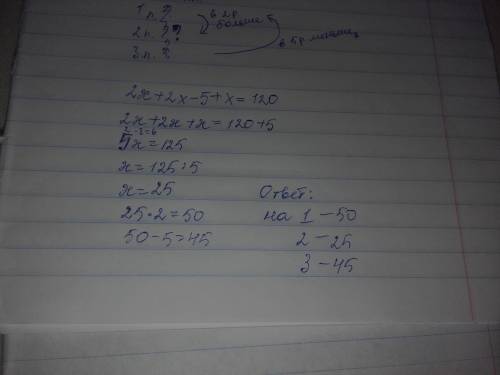 1 п. ?
2 п. ??
3 п. ?
в 2р больше
в 5р меньше
2x+2x-5+x=120
2x+2x+x=120+5
5x=125
x=125:5
x=25
25·2=50
50-5=45
Ответ:
на 1 - 50
2 - 25
3 - 45